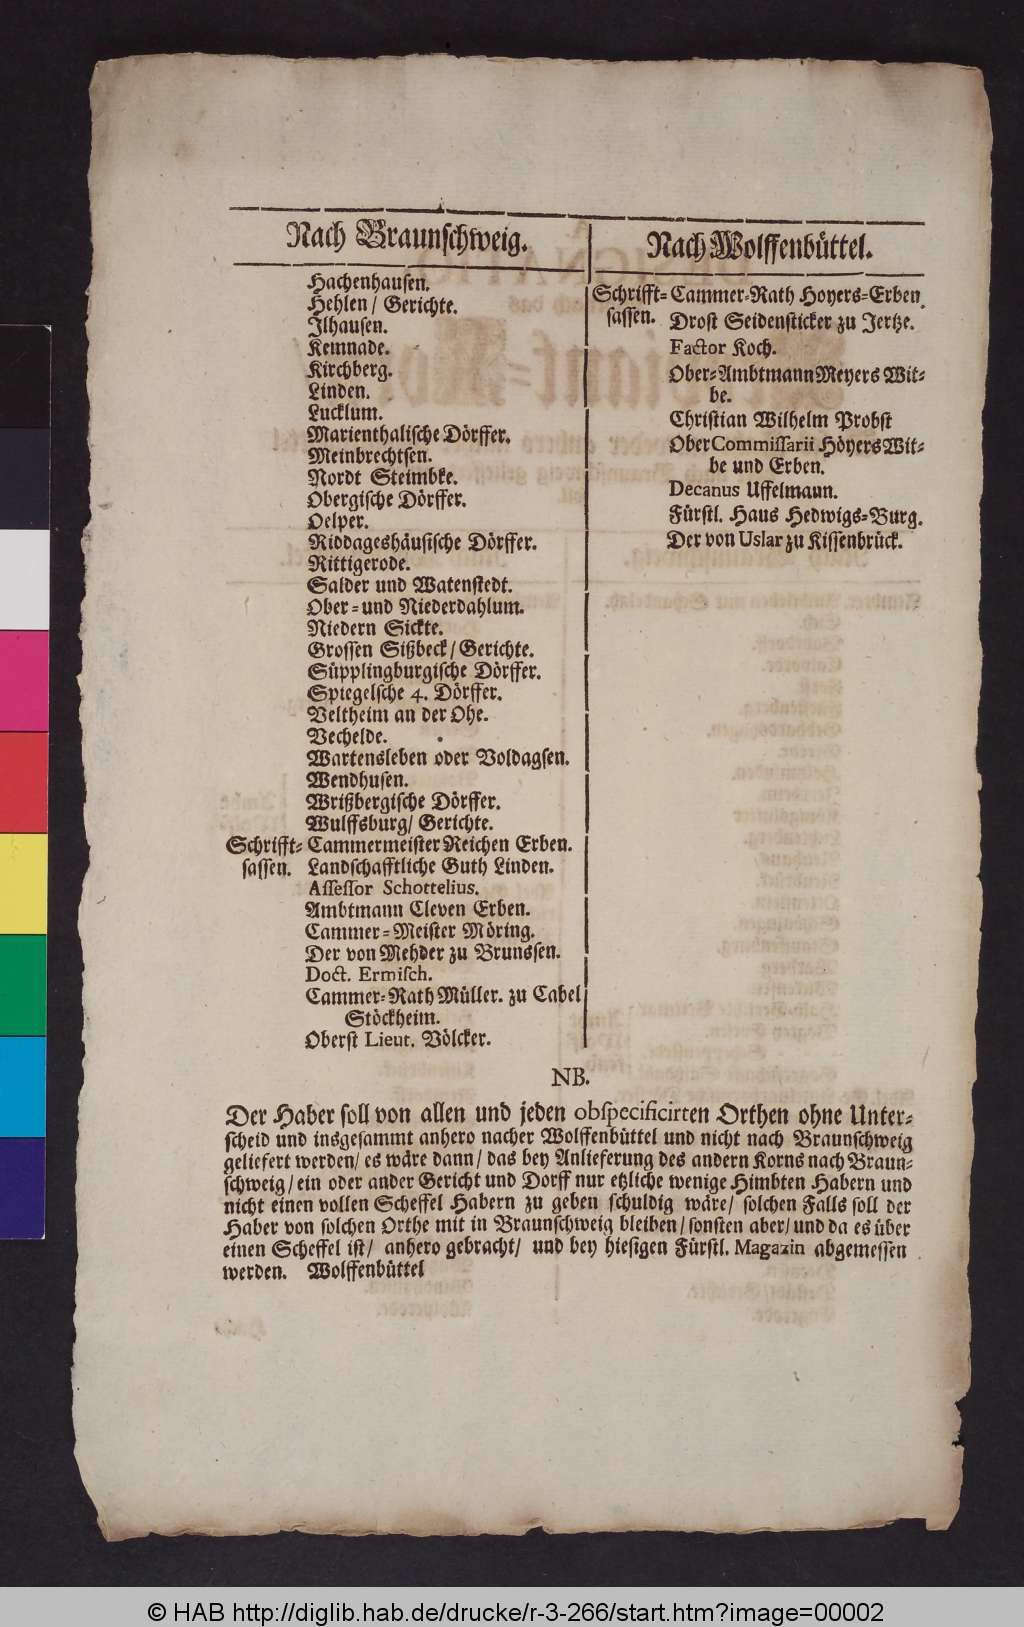 Nach Braunschweig.
Hachenhausen.
Hehlen / Gerichte.
Ilhausen.
Kemnade.
Kirchberg.
Linden.
Lucklum.
Marienthalische Dörffer.
Meinbrechtsen.
Nordt Steimbke.
Obergische Dörffer.
Oelper.
Riddageshäusische Dörffer.
Rittigerode.
Salder und Watenstedt.
Ober- und Niederdahlum.
Niedern Sickte.
Grossen Sißbeck / Gerichte.
Süpplingburgische Dörffer.
Spiegelsche 4. Dörffer.
Veltheim an der Ohe.
Vechelde.
Wartensleben oder Voldagsen.
Wendhusen.
Wrißbergische Dörffer.
Wulffsburg / Gerichte.
Schrifft- Cammermeister Reichen Erben.
sassen. Landschafftliche Guth Linden.
Assessor Schottelius.
Ambtmann Cleven Erben.
Cammer-Meister Möring.
Der von Mehder zu Brunssen.
Doct. Ermisch.
Cammer-Rath Müller. zu Cabel
Stöckheim.
Oberst Lieut. Völcker.
Nach Wolffenbüttel.
Schrifft- Cammer-Rath Hoyers-Erben.
sassen. Drost Seidensticker zu Jertze.
Factor Koch.
Ober-Ambtmann Meyers Wit-
be.
Christian Wilhelm Probst
Ober Commissarii Höyers Wit-
be und Erben.
Decanus Uffelmann.
Fürstl. Haus Hedwigs-Burg.
Der von Uslar zu Kissenbrück.
NB.
Der Haber soll von allen und jeden obspecificirten Orthen ohne Unter-
scheid und insgesammt anhero nacher Wolffenbüttel und nicht nach Braunschweig
geliefert werden / es wäre dann / das bey Anlieferung des andern Korns nach Braun-
schweig / ein oder ander Gericht und Dorff nur etzliche wenige Himbten Habern und
nicht einen vollen Scheffel Habern zu geben schuldig wäre / solchen Falls soll der
Haber von solchen Orthe mit in Braunschweig bleiben / sonsten aber / und da es über
einen Scheffel ist / anhero gebracht / und bey hiesigen Fürstl. Magazin abgemessen
werden. Wolffenbüttel
© HAB http://diglib.hab.de/drucke/r-3-266/start.htm?image=00002